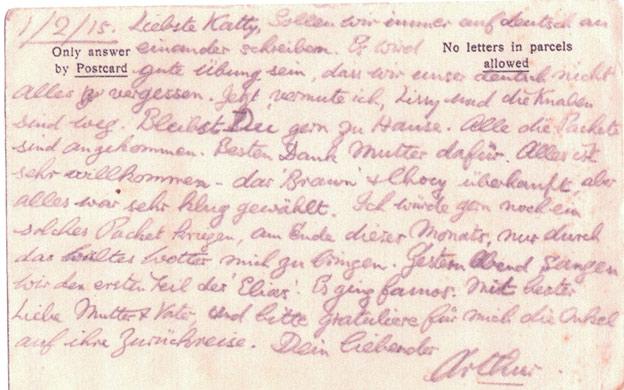 1/2/15. Liebste Katty, Sollen wir immer auf deutsch an
Only answer by Postcard
einander schreiben. Es wird
No letters in parcels allowed
gute übung sein, dass wir unser deutsch nicht
alles zu vergessen. Jetzt vermute ich, Lissy und die Knaben
sind weg. Bleibst Du gern zu Hause. Alle die Packete
sind angekommen. Besten Dank Mutter dafür. Alles ist
sehr willkommen - das 'Brawn' & Chocy überhaupt aber
alles war sehr klug gewählt. Ich würde gern noch ein
solches Packet kriegen, am Ende dieser Monats, nur durch
das kaltes wetter mich zu bringen. Gestern Abend sangen
wir den ersten Teil des 'Elias'. Es ging famos. Mit bester
Liebe Mutter & Vater und bitte gratuliere für mich die Onkel
auf ihre Zurückreise. Dein liebender
Arthur.